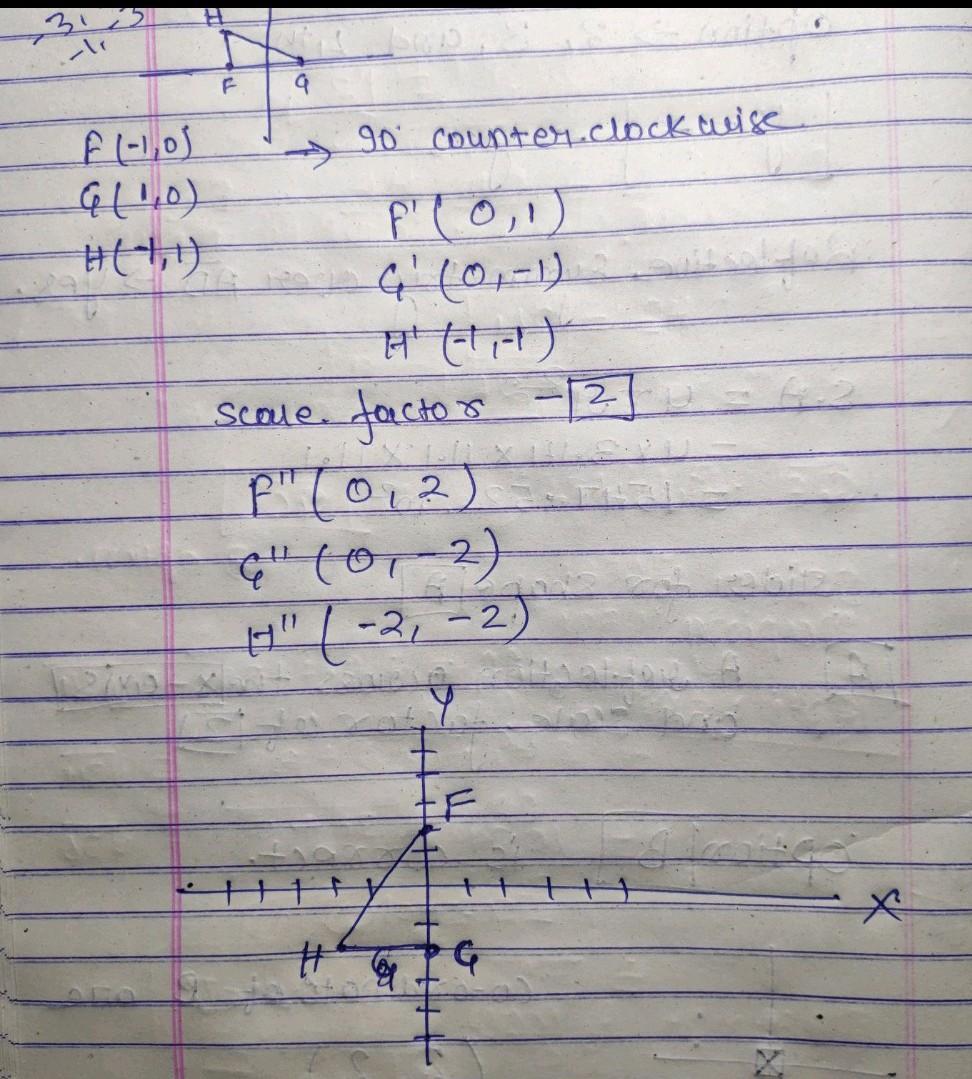 -3, -3
-1,
H
F G
F (-1,0) → 90° counter.clockwise
G (1,0)
F' (0,1)
H (-1,1)
G' (0,-1)
H' (-1,-1)
scale. factor - 2
F'' (0,2)
G'' (0,-2)
H'' (-2,-2)
Y
F
X
H G